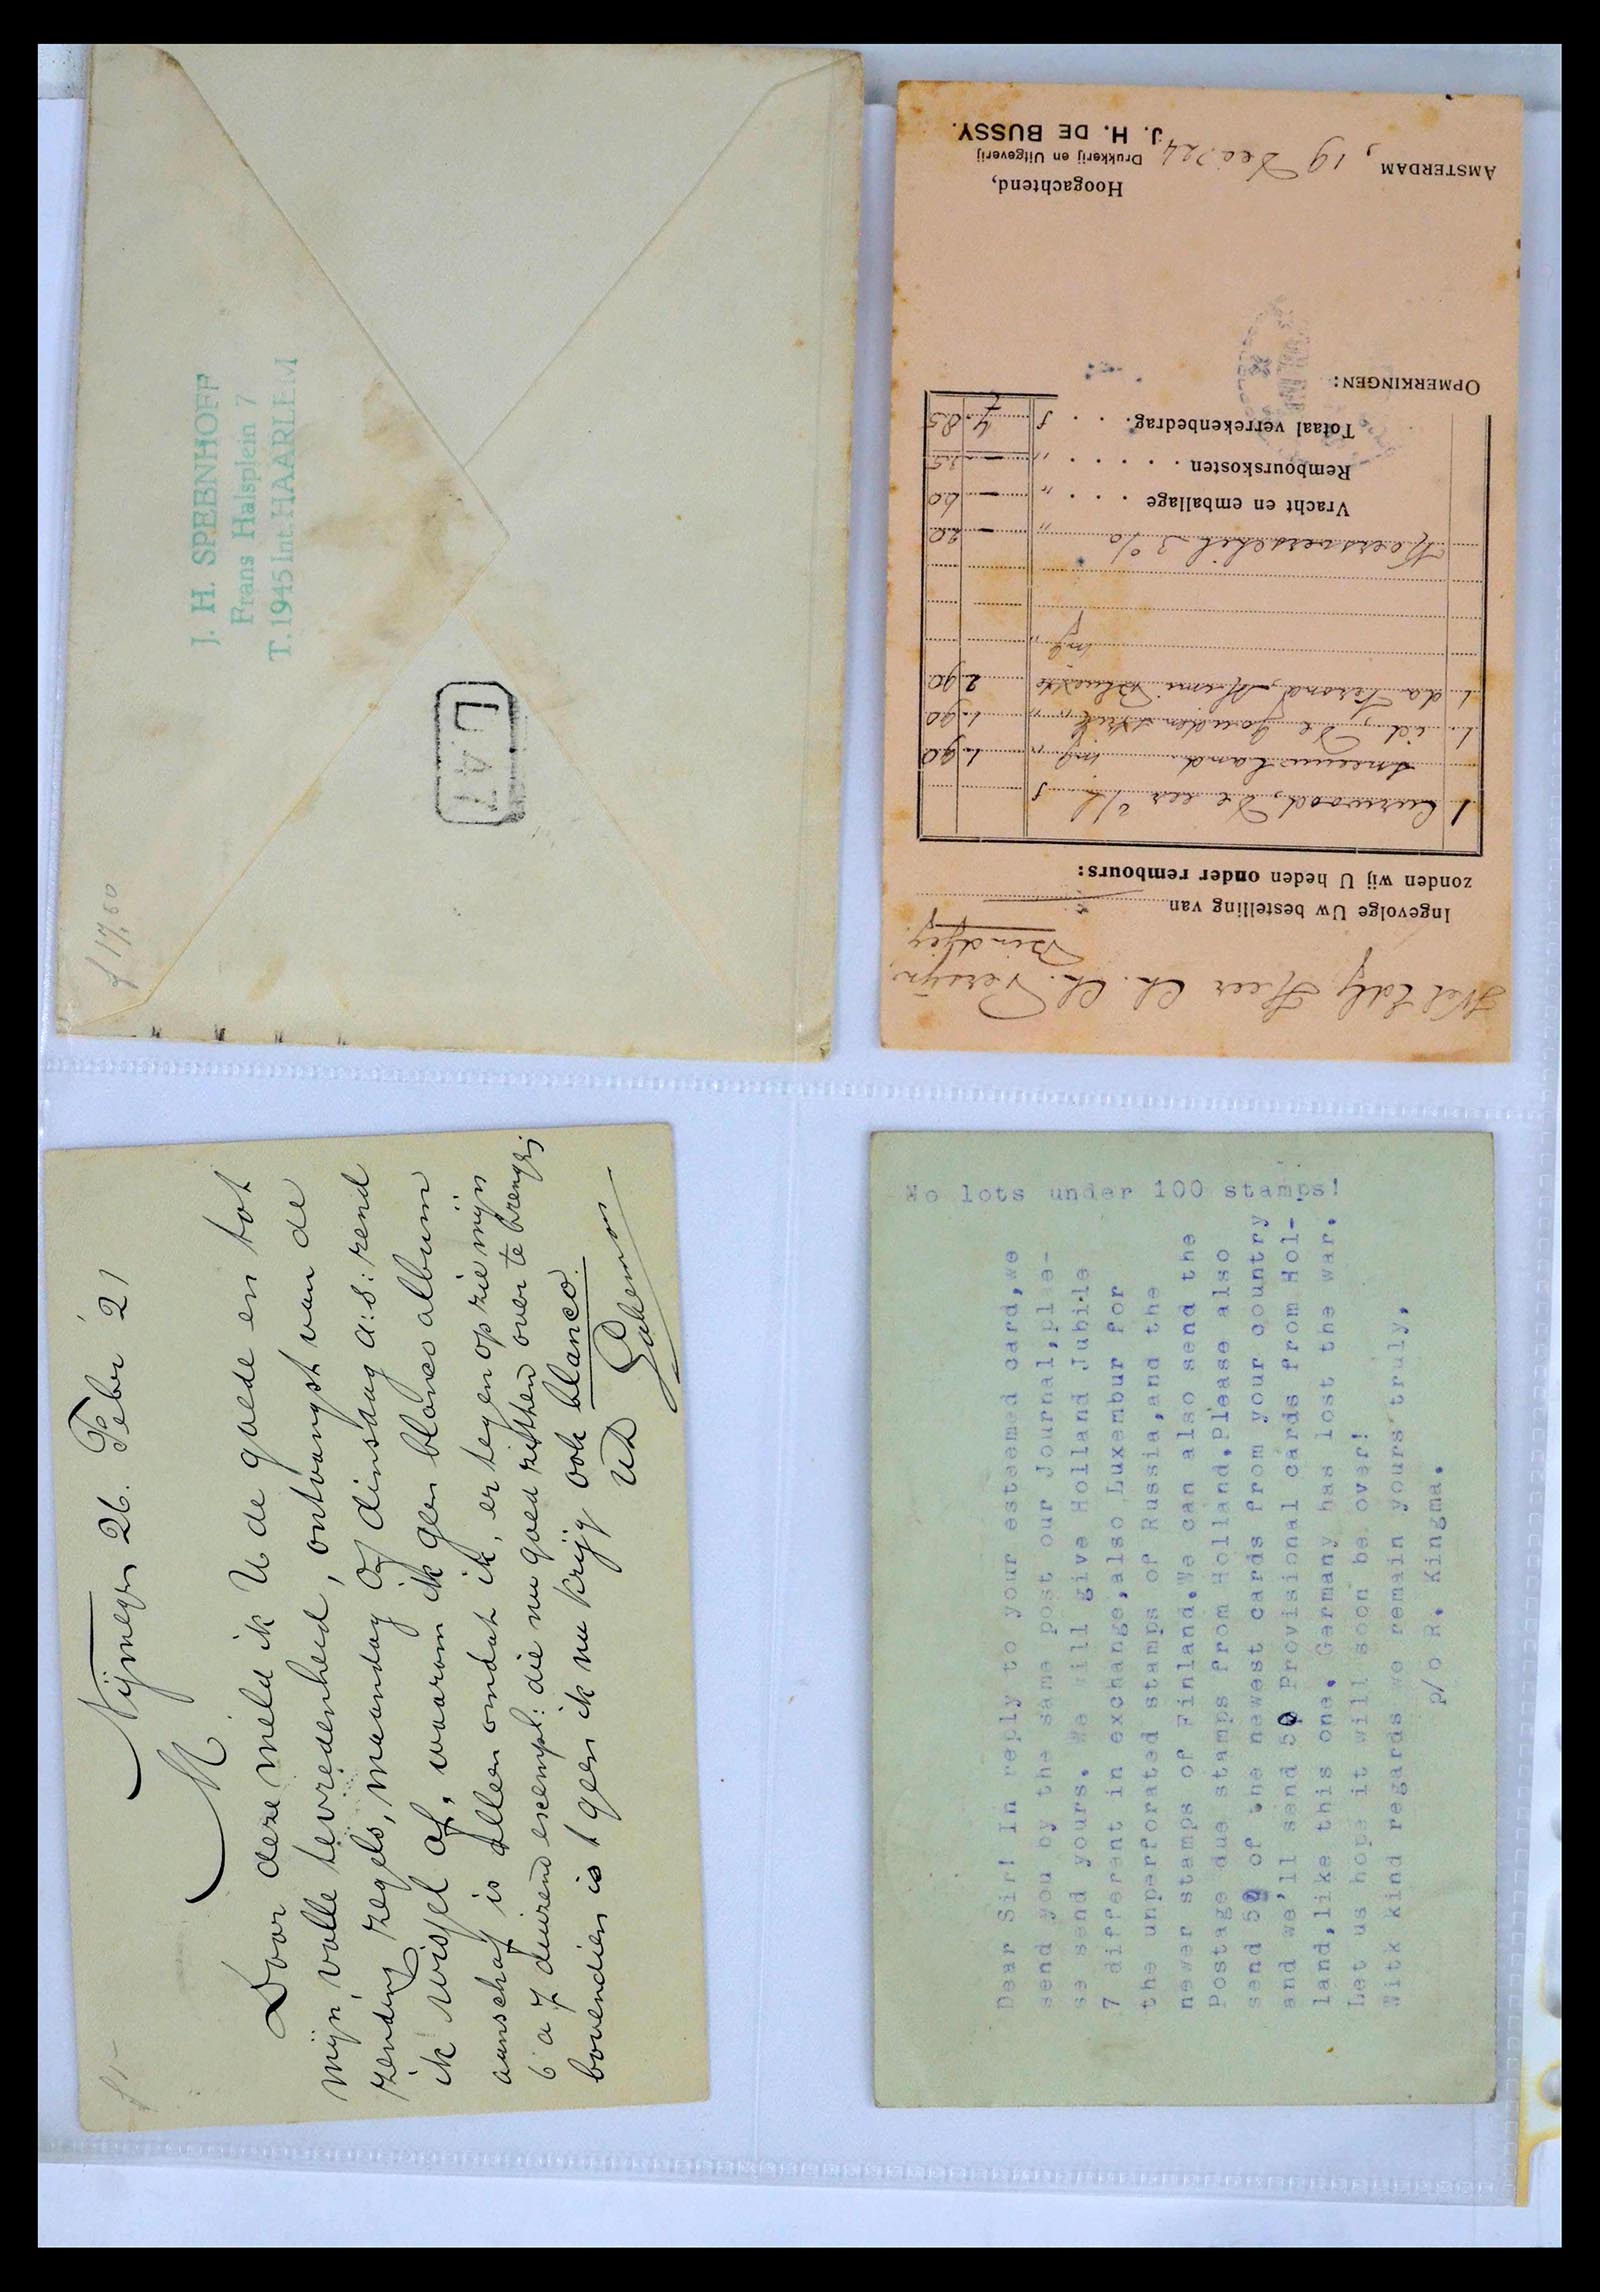 J. H. SPEENHOFF
Frans Halsplein 7
T. 1945 Int. HAARLEM
LAT
f 17,60
Wel Edly Heer Ch. Ch.
Ingevolge Uw bestelling van
zonden wij U heden onder rembours:
1 Curwood, De
Sneeuwland. ing " 1 90
1 id, De gouden " " 1 90
1 2 90
Koersverschil 3 % " — 20
Vracht en emballage . . . " — 60
Rembourskosten . . . . . " — 25
Totaal verrekenbedrag. . . f 7 85
OPMERKINGEN:
AMSTERDAM, 19 Dec. '24
Hoogachtend,
Drukkerij en Uitgeverij
J. H. DE BUSSY.
f 1-
Nijmegen 26. Febr '21
M
Door deze meld ik U de goede en tot
mijn volle tevredenheid, ontvangst van de
zending zegels, maandag of dinsdag a:s: zend
ik wissel af, waarom ik geen blanco album
aanschaf is alleen omdat ik, er tegen op zie mijn
6 a 7 duizend exempl: die nu goed zitten over te brengen
bovendien is 't geen ik nu krijg ook blanco.
UD
No lots under 100 stamps!
Dear Sir! In reply to your esteemed card,we
send you by the same post our Journal,plea-
se send yours. We will give Holland Jubile
7 different in exchange,also Luxembur for
the unperforated stamps of Russia,and the
newer stamps of Finland.We can also send the
Postage due stamps from Holland.Please also
send 50 of the newest cards from your country
and we'll send 50 Provisional cards from Hol-
land,like this one. Germany has lost the war.
Let us hope it will soon be over!
With kind regards we remain yours truly,
p/o R. Kingma.